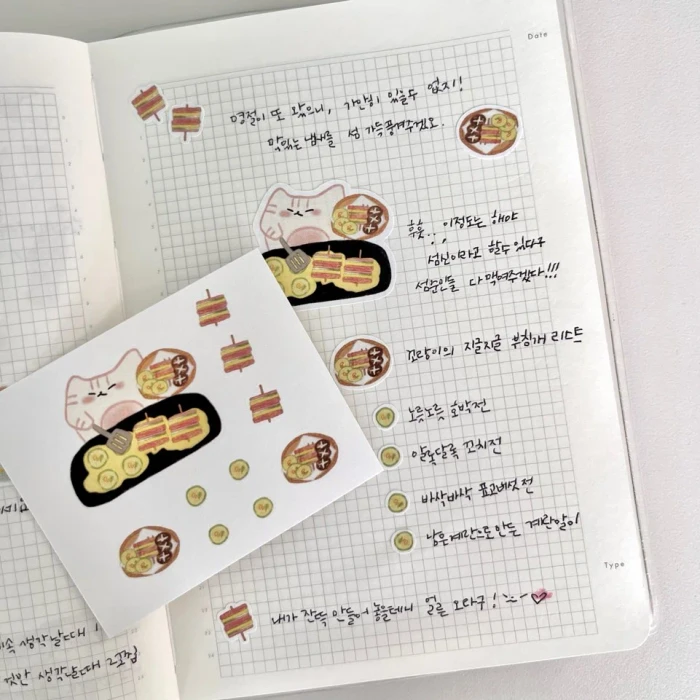 Date
명절이 또 왔으니, 가만히 있을 수 없지!
맛있는 냄새를 섬 가득 풍겨주겠오.
후훗.. 이정도는 해야
섬신이라고 할 수 있다구
섬주민들 다 먹여주겠다!!!
꼬랑이의 지글지글 부침개 리스트
노릇노릇 호박전
알록달록 꼬치전
바삭바삭 표고버섯전
남은계란으로만든 계란말이
Type
내가 잔뜩 만들어 놓을테니 얼른 오라구!
생각날때
생각날때